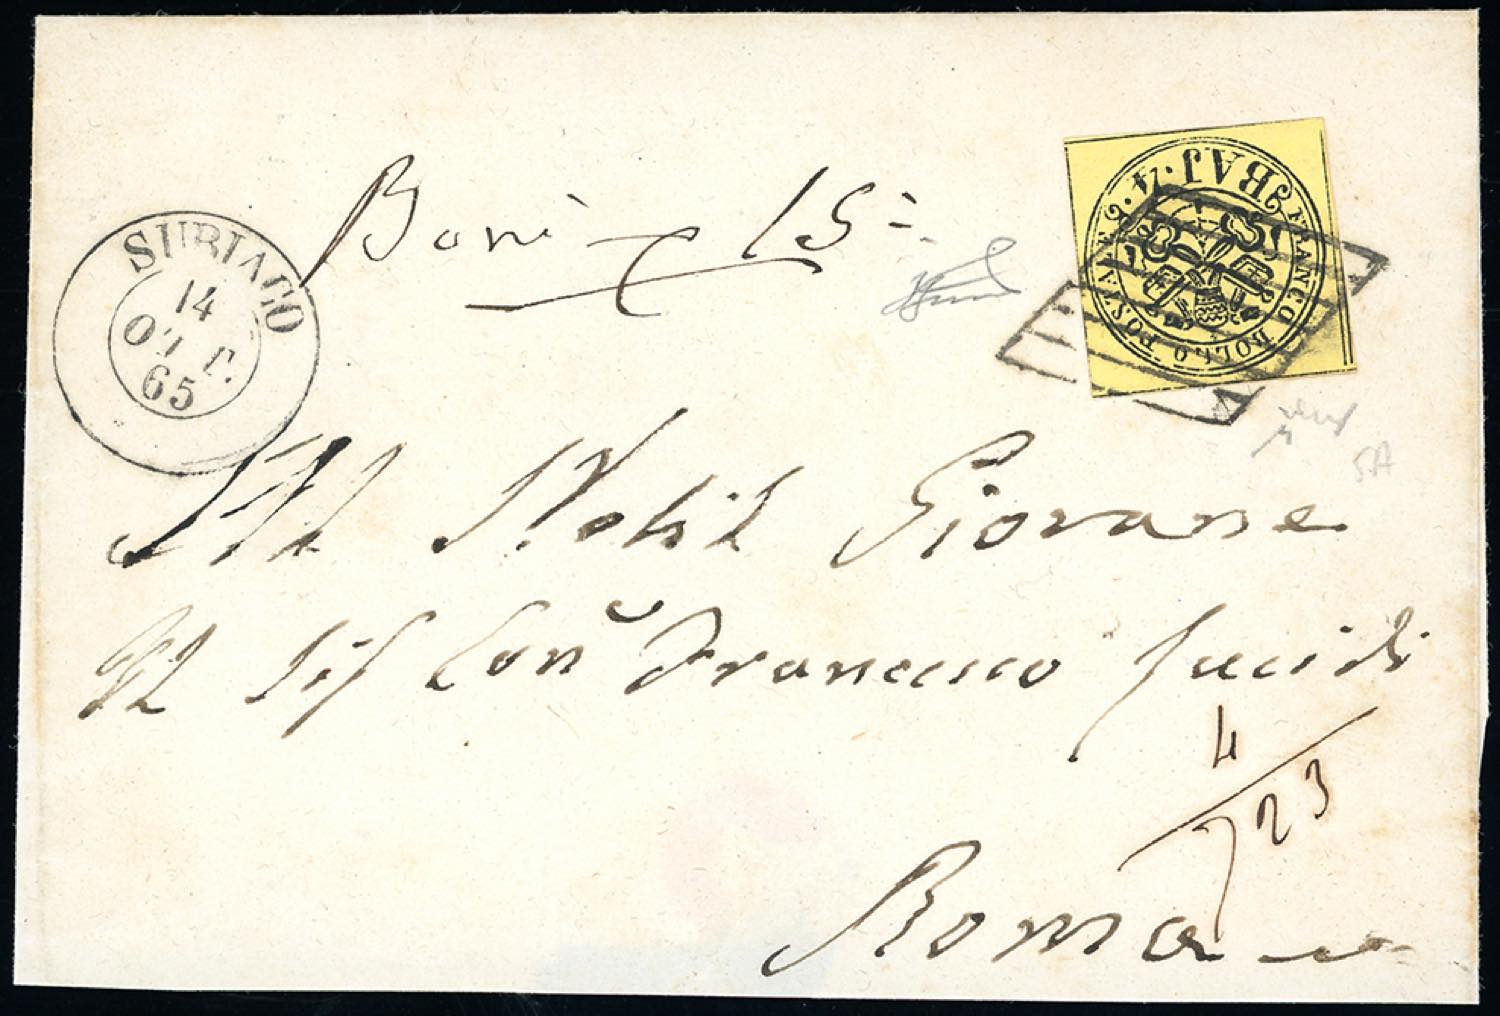 SUBIACO
14
OTT.
65
Boni 15=
FRANCO BOLLO POSTALE
BAJ. 4.
All Nobil Giovane
Il Sig Con Francesco Lucidi
4
723
Roma
5A